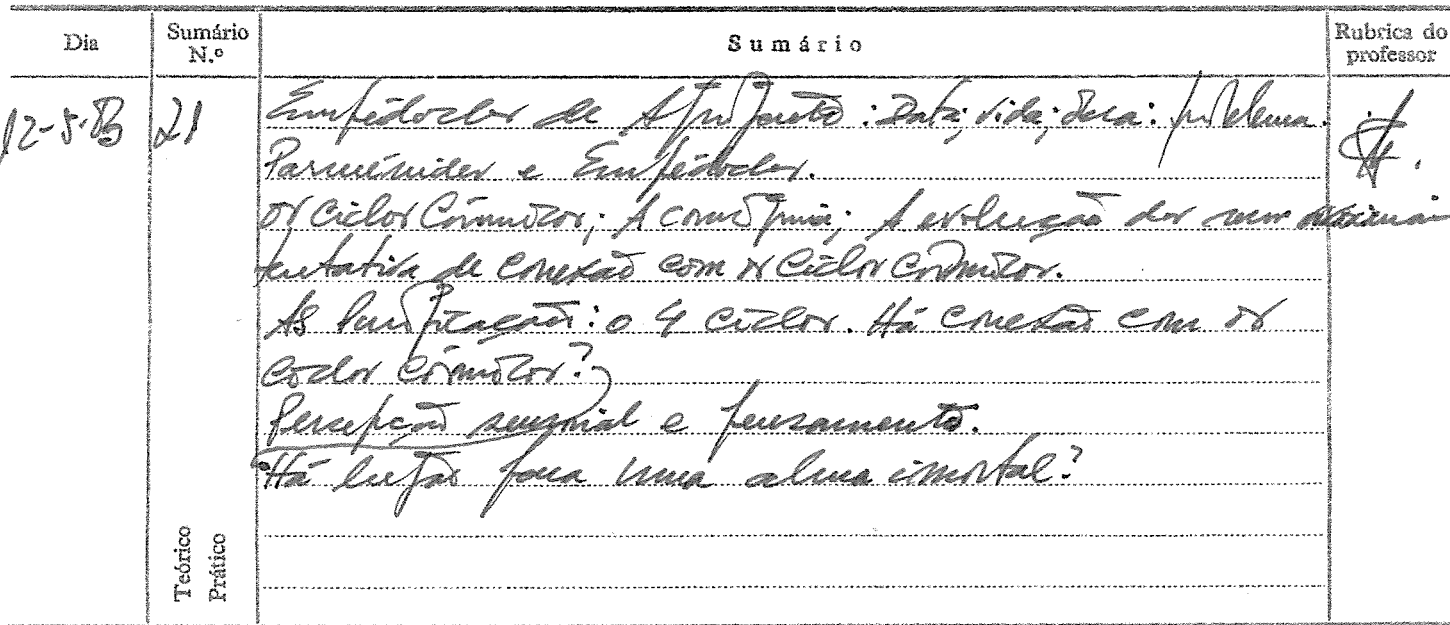 Dia
Sumário N.º
Sumário
Rubrica do professor
12-5-83
21
Empédocles de Agrigento: Data; vida; obra: problema.
Parménides e Empédocles.
os Ciclos Cósmicos; A cosmogonia; A evolução dos seres
tentativa de conexão com os Ciclos Cósmicos.
As Purificações: o 4 ciclos. Há conexão com os
Ciclos Cósmicos?
Percepção sensorial e pensamento.
Há lugar para uma alma imortal?
Teórico
Prático